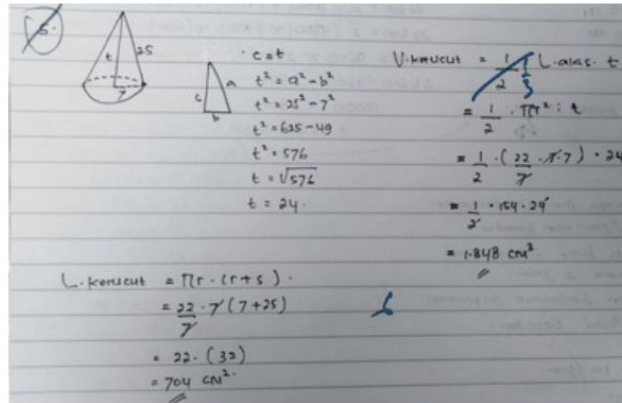 5.
t
25
7
c
a
b
· c = t
t² = a² - b²
t² = 25² - 7²
t² = 625 - 49
t² = 576
t = √576
t = 24.
V. kerucut = 1/2 1/3 L. alas. t
= 1/2 · πr² : t
= 1/2 · (22/7 · 7 · 7) · 24
= 1/2 · 154 · 24
= 1.848 cm³
L. kerucut = πr · (r + s) ·
= 22/7 · 7 (7 + 25)
= 22 · (32)
= 704 cm².
6